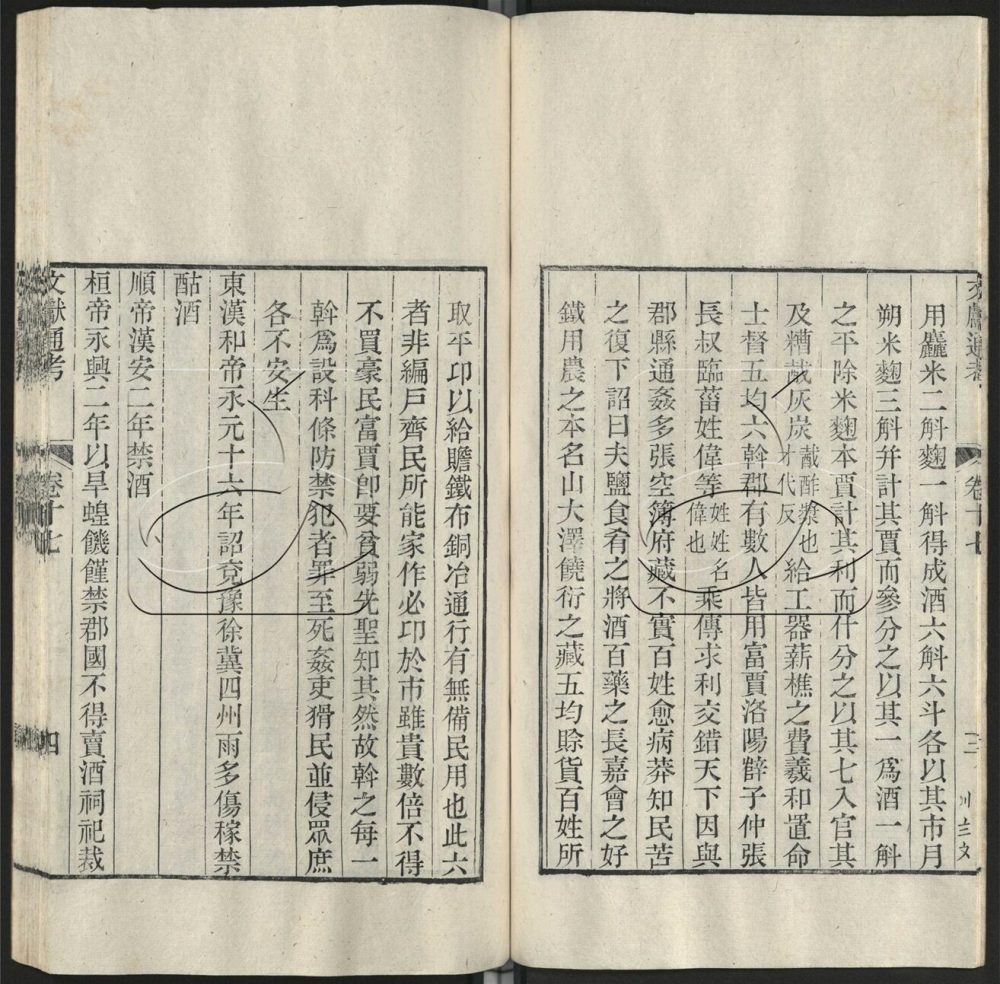 文獻通考 卷十七 三
用麤米二斛麴一斛得成酒六斛六斗各以其市月
朔米麴三斛幷計其賈而參分之以其一爲酒一斛
之平除米麴本賈計其利而什分之以其七入官其
及糟酨灰炭酨酢漿也才代反給工器薪樵之費羲和置命
士督五均六斡郡有數人皆用富賈洛陽薛子仲張
長叔臨菑姓偉等姓姓名偉也乘傳求利交錯天下因與
郡縣通姦多張空簿府藏不實百姓愈病莽知民苦
之復下詔曰夫鹽食肴之將酒百藥之長嘉會之好
鐵用農之本名山大澤饒衍之藏五均賒貨百姓所
取平卬以給贍鐵布銅冶通行有無備民用也此六
者非編戸齊民所能家作必卬於市雖貴數倍不得
不買豪民富賈卽要貧弱先聖知其然故斡之每一
斡爲設科條防禁犯者罪至死姦吏猾民並侵眾庶
各不安生
東漢和帝永元十六年詔兗豫徐冀四州雨多傷稼禁
酤酒
順帝漢安二年禁酒
桓帝永興二年以旱蝗饑饉禁郡國不得賣酒祠祀裁
文獻通考 卷十七 四